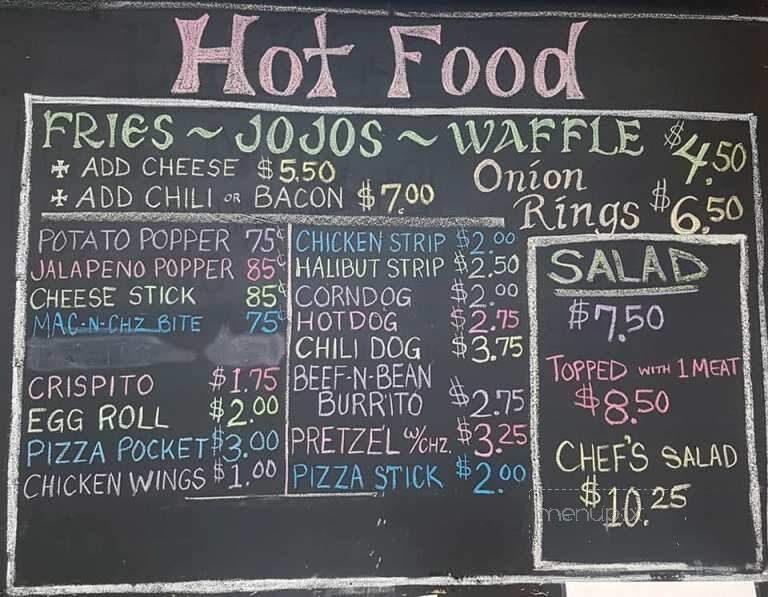 Hot Food
FRIES ~ JOJOS ~ WAFFLE $4.50
✠ ADD CHEESE $5.50
✠ ADD CHILI OR BACON $7.00
Onion
Rings $6.50
POTATO POPPER 75¢
JALAPENO POPPER 85¢
CHEESE STICK 85¢
MAC-N-CHZ BITE 75¢
CRISPITO $1.75
EGG ROLL $2.00
PIZZA POCKET $3.00
CHICKEN WINGS $1.00
CHICKEN STRIP $2.00
HALIBUT STRIP $2.50
CORNDOG $2.00
HOTDOG $2.75
CHILI DOG $3.75
BEEF-N-BEAN
BURRITO $2.75
PRETZEL W/CHZ. $3.25
PIZZA STICK $2.00
SALAD
$7.50
TOPPED WITH 1 MEAT
$8.50
CHEF'S SALAD
$10.25
menupix